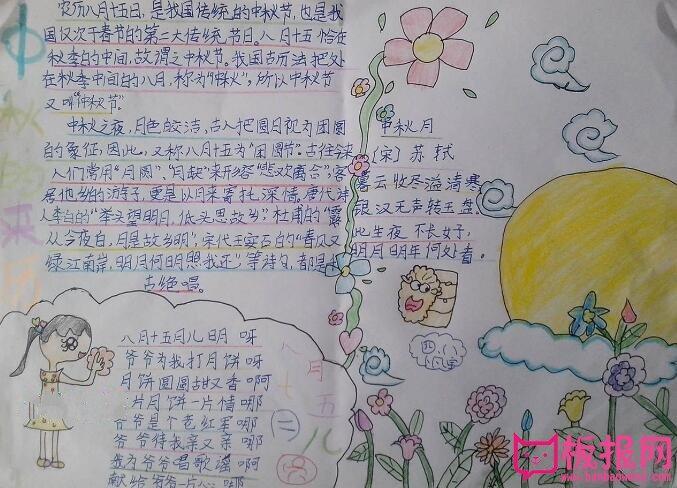 中秋的来历
农历八月十五日，是我国传统的中秋节，也是我
国仅次于春节的第二大传统节日。八月十五恰在
秋季的中间，故谓之中秋节。我国古历法把处
在秋季中间的八月，称为"仲秋"，所以中秋节
又叫"仲秋节"。
中秋之夜，月色皎洁，古人把圆月视为团圆
的象征，因此，又称八月十五为"团圆节"。古往今来
人们常用"月圆"、"月缺"来形容"悲欢离合"，客
居他乡的游子，更是以月来寄托深情。唐代诗
人李白的"举头望明月，低头思故乡"、杜甫的"露
从今夜白，月是故乡明"，宋代王安石的"春风又
绿江南岸，明月何时照我还"等诗句，都是
古绝唱。
中秋月
〔宋〕苏轼
暮云收尽溢清寒
银汉无声转玉盘。
此生夜不长好，
明月明年何处看。
八月十五月儿明呀
爷爷为我打月饼呀
月饼圆圆甜又香啊
一片月饼一片情哪
爷爷是个老红军哪
爷爷待我亲又亲哪
我为爷爷唱歌谣啊
献给爷爷一片心哪
八月十五儿
四.(二)
板报网
www.banbaowang.com